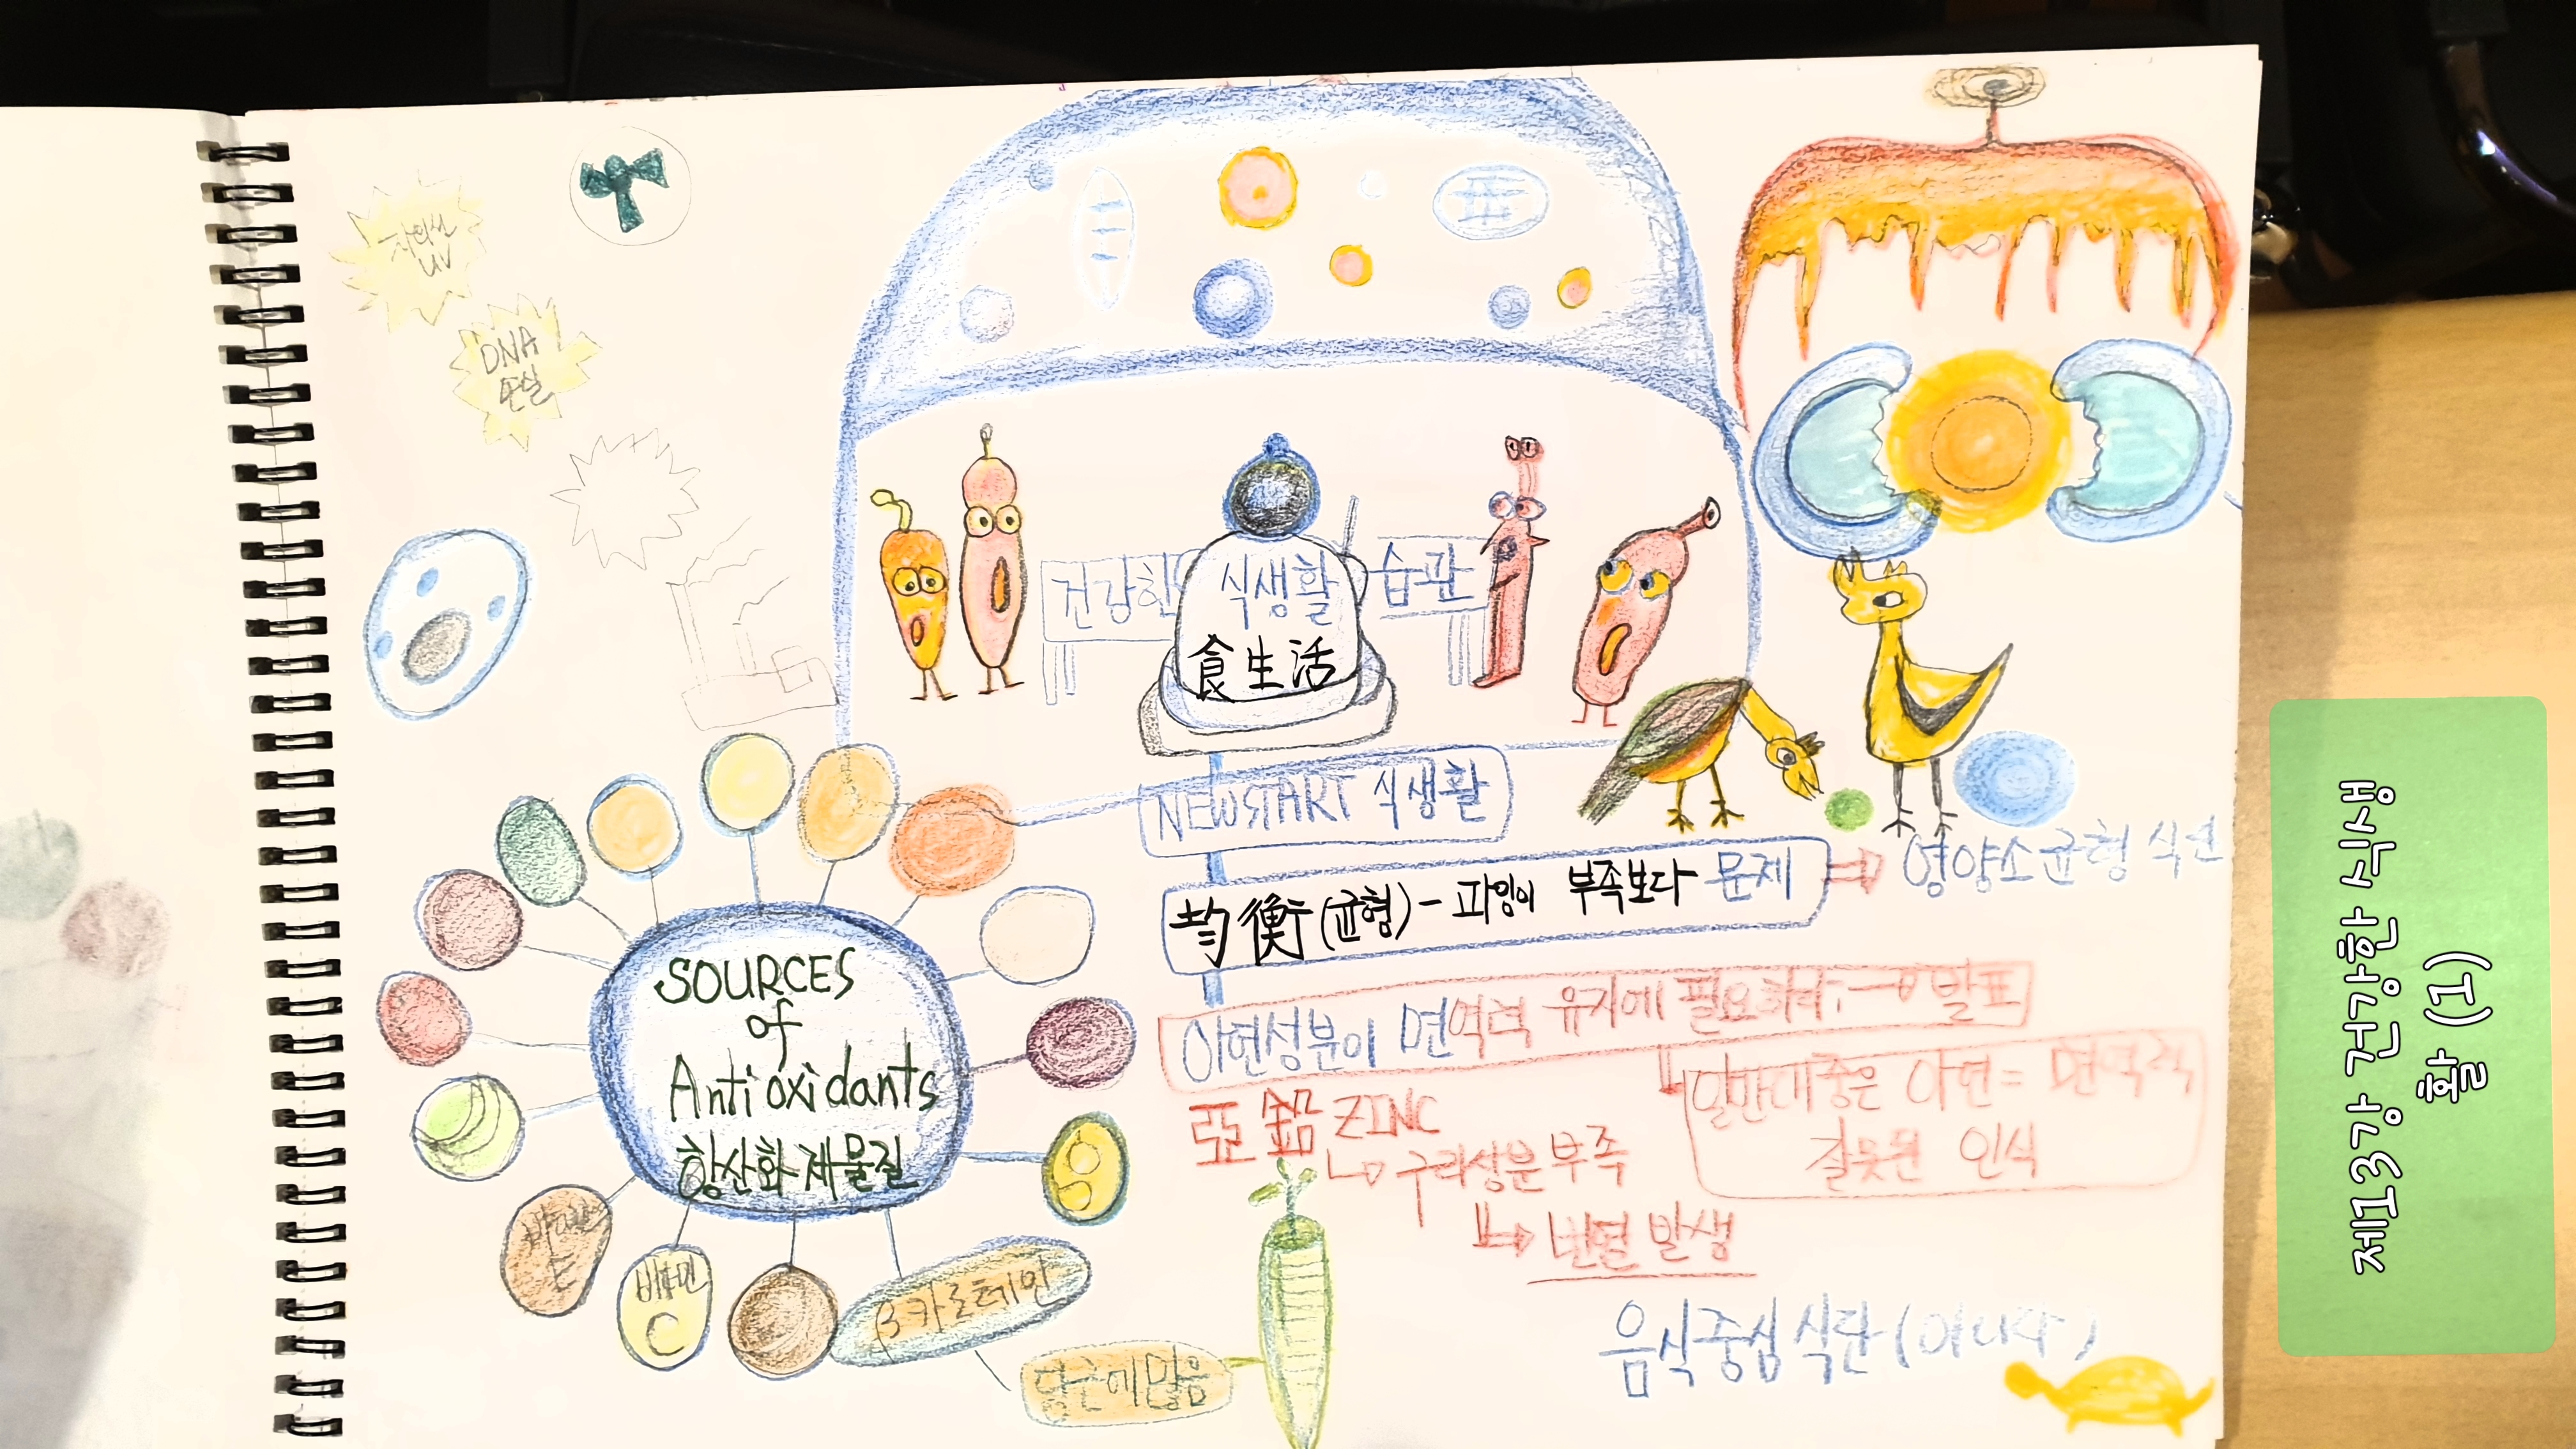 자외선
UV
DNA
손실
건강한 식생활 습관
食生活
NEWSTART 식생활
均衡(균형)- 과잉이 부족보다 문제 ⇒ 영양소균형 식단
아연성분이 면역력 유지에 필요하다. → 발표
일반대중은 아연= 면역력
잘못된 인식
亞鉛 ZINC
↳ 구리성분 부족
↳ 빈혈 발생
음식중심 식단(이나사)
SOURCES
of
Antioxidants
항산화제물질
비타민
E
비타민
C
β카로테인
당근에많음
제13강 건강한 식생
활 (1)